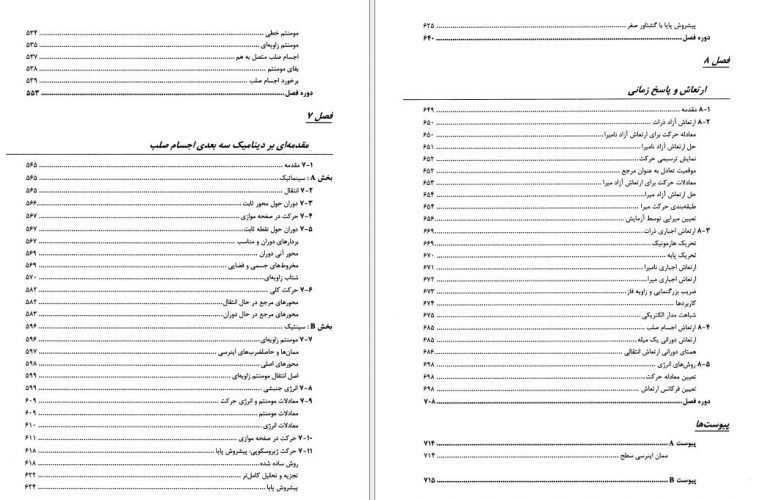 مومنتم خطی ........ ۵۳۴
مومنتم زاویه‌ای ........ ۵۳۵
اجسام صلب متصل به هم ........ ۵۳۷
بقای مومنتم ........ ۵۳۸
برخورد اجسام صلب ........ ۵۳۹
دوره فصل ........ ۵۵۳
فصل ۷
مقدمه‌ای بر دینامیک سه بعدی اجسام صلب
۷-۱ مقدمه ........ ۵۶۵
بخش A : سینماتیک ........ ۵۶۵
۷-۲ انتقال ........ ۵۶۵
۷-۳ دوران حول محور ثابت ........ ۵۶۶
۷-۴ حرکت در صفحه موازی ........ ۵۶۷
۷-۵ دوران حول نقطه ثابت ........ ۵۶۷
بردارهای دوران و مناسب ........ ۵۶۷
محور آنی دوران ........ ۵۶۹
مخروط‌های جسمی و فضایی ........ ۵۶۹
شتاب زاویه‌ای ........ ۵۷۰
۷-۶ حرکت کلی ........ ۵۸۲
محورهای مرجع در حال انتقال ........ ۵۸۲
محورهای مرجع در حال دوران ........ ۵۸۳
بخش B : سینتیک ........ ۵۹۶
۷-۷ مومنتم زاویه‌ای ........ ۵۹۶
ممان‌ها و حاصلضرب‌های اینرسی ........ ۵۹۷
محورهای اصلی ........ ۵۹۸
اصل انتقال مومنتم زاویه‌ای ........ ۵۹۹
۷-۸ انرژی جنبشی ........ ۵۹۹
۷-۹ معادلات مومنتم و انرژی حرکت ........ ۶۰۹
معادلات مومنتم ........ ۶۰۹
معادلات انرژی ........ ۶۱۰
۷-۱۰ حرکت در صفحه موازی ........ ۶۱۱
۷-۱۱ حرکت ژیروسکوپی: پیشروش پایا ........ ۶۱۸
روش ساده شده ........ ۶۱۸
تجزیه و تحلیل کامل‌تر ........ ۶۲۲
پیشروش پایا ........ ۶۲۴
پیشروش پایا با گشتاور صفر ........ ۶۲۵
دوره فصل ........ ۶۴۰
فصل ۸
ارتعاش و پاسخ زمانی
۸-۱ مقدمه ........ ۶۴۹
۸-۲ ارتعاش آزاد ذرات ........ ۶۵۰
معادله حرکت برای ارتعاش آزاد نامیرا ........ ۶۵۰
حل ارتعاش آزاد نامیرا ........ ۶۵۱
نمایش ترسیمی حرکت ........ ۶۵۲
موقعیت تعادل به عنوان مرجع ........ ۶۵۲
معادلات حرکت برای ارتعاش آزاد میرا ........ ۶۵۳
حل ارتعاش آزاد میرا ........ ۶۵۴
طبقه‌بندی حرکت میرا ........ ۶۵۴
تعیین میرایی توسط آزمایش ........ ۶۵۶
۸-۳ ارتعاش اجباری ذرات ........ ۶۶۹
تحریک هارمونیک ........ ۶۶۹
تحریک پایه ........ ۶۷۰
ارتعاش اجباری نامیرا ........ ۶۷۱
ارتعاش اجباری میرا ........ ۶۷۲
ضریب بزرگنمایی و زاویه فاز ........ ۶۷۳
کاربردها ........ ۶۷۴
شباهت مدار الکتریکی ........ ۶۷۵
۸-۴ ارتعاش اجسام صلب ........ ۶۸۵
ارتعاش دورانی یک میله ........ ۶۸۵
همتای دورانی ارتعاش انتقالی ........ ۶۸۶
۸-۵ روش‌های انرژی ........ ۶۹۸
تعیین معادله حرکت ........ ۶۹۸
تعیین فرکانس ارتعاش ........ ۶۹۸
دوره فصل ........ ۷۰۸
پیوست‌ها
پیوست A ........ ۷۱۴
ممان اینرسی سطح ........ ۷۱۴
پیوست B ........ ۷۱۵